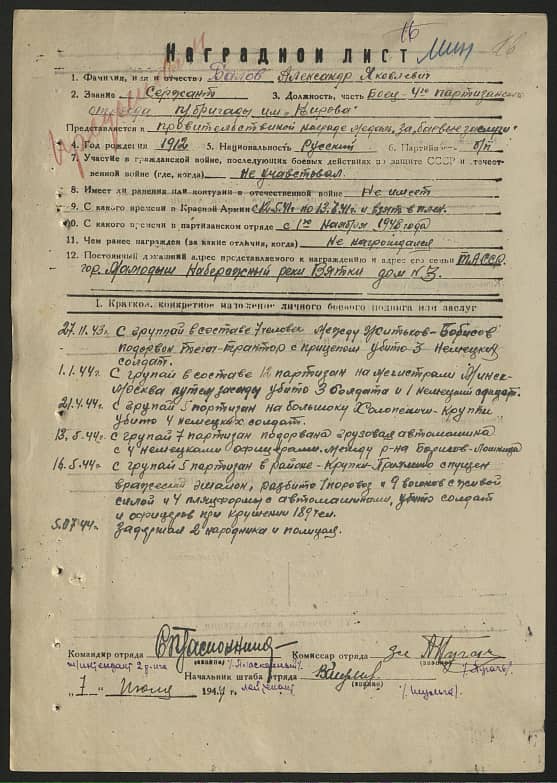 16
16
Мин
Наградной лист
1. Фамилия, имя и отчество Балов Александр Яковлевич
2. Звание Сержант 3. Должность, часть Боец 4го партизанского
отряда п/бригады им. Кирова
Представляется к правительственной награде Медаль „За боевые заслуги"
4. Год рождения 1912 5. Национальность Русский 6. Партийность б/п
7. Участие в гражданской войне, последующих боевых действиях по защите СССР и отечест-
венной войне (где, когда) не участвовал
8. Имеет ли ранения или контузии в отечественной войне Не имеет
9. С какого времени в Красной Армии и взят в плен.
10. С какого времени в партизанском отряде с 1го Ноября 1943 года
11. Чем ранее награжден (за какие отличия, когда) Не награждался
12. Постоянный домашний адрес представляемого к награждению и адрес его семьи ТАССР.
гор. Мамадыш Набережный реки Вятки дом N 3.
I. Краткое, конкретное изложение личного боевого подвига или заслуг
27.11.43г. С группай в составе 7 человек между Житьков-Борисов
подорван трактор с прицепом убито 3 немецких
солдат.
1.1.44г. С групай в составе 12 партизан на магистрали Минск-
Москва путем засады убито 3 солдата и 1 немецкий
21.4.44г. с групай 5 партизан на большоку Холопеничи-Крупки
убито 4 немецких солдат.
13.5.44г. с групай 7 партизан подорвана грузовая автомашина
с 4 немецкими офицерами. между р-на Борисов-Лошница
16.5.44г. с групай 5 партизан в районе Крупки- спущен
вражеский эшалон, разбито 1 паровоз и 9 вагонов с живой
силой и 4 платформы с автомашинами, убито солдат
и офицеров при крушении 189 чел.
5.07.44г. Задержал 2 народника и полицая.
Командир отряда Комиссар отряда
(звание) (звание)
Начальник штаба отряда
(звание)
„7" Июля 1944 г.